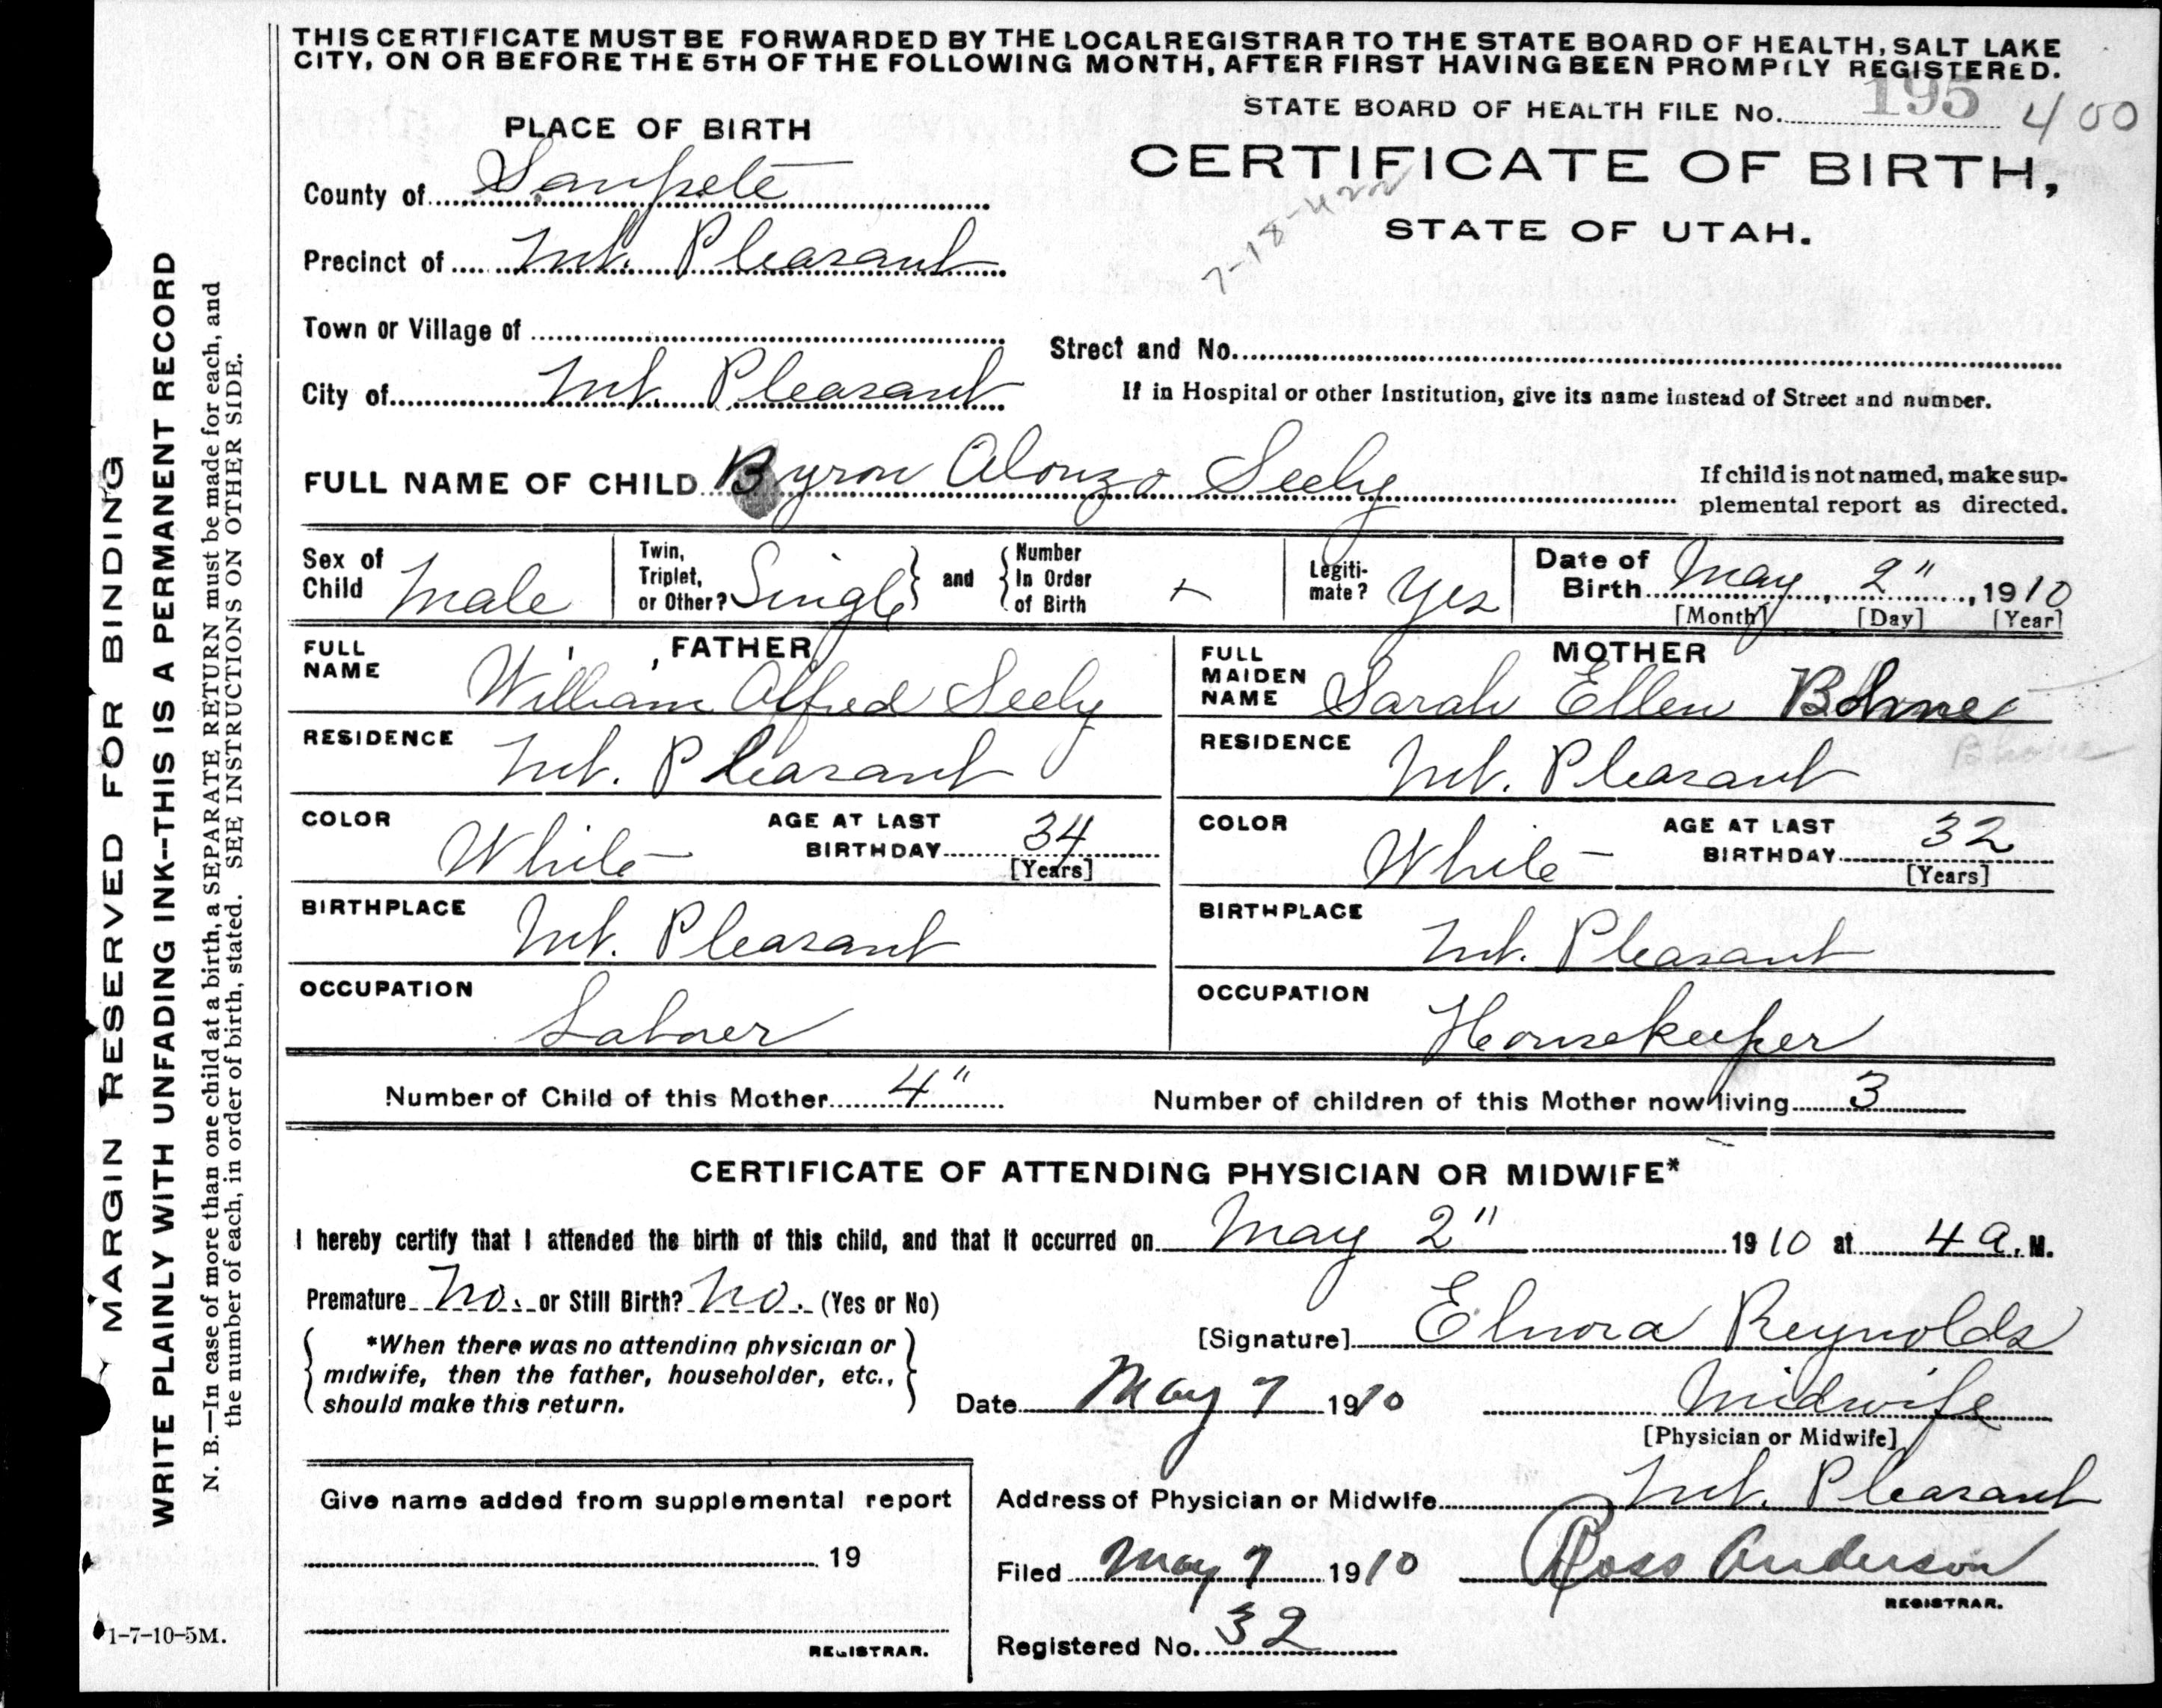 THIS CERTIFICATE MUST BE FORWARDED BY THE LOCAL REGISTRAR TO THE STATE BOARD OF HEALTH, SALT LAKE
CITY, ON OR BEFORE THE 5TH OF THE FOLLOWING MONTH, AFTER FIRST HAVING BEEN PROMPTLY REGISTERED.
STATE BOARD OF HEALTH FILE No. 195 400
PLACE OF BIRTH
CERTIFICATE OF BIRTH,
STATE OF UTAH.
County of Sanpete
Precinct of Mt. Pleasant
Town or Village of
Street and No.
City of Mt. Pleasant
If in Hospital or other Institution, give its name instead of Street and number.
FULL NAME OF CHILD Byron Alonzo Seely
If child is not named, make sup-
plemental report as directed.
Sex of Child Male
Twin, Triplet, or Other? Single and Number In Order of Birth +
Legiti-mate? Yes
Date of Birth May 2", 1910
[Month] [Day] [Year]
FATHER
FULL NAME William Alfred Seely
RESIDENCE Mt. Pleasant
COLOR White AGE AT LAST BIRTHDAY 34 [Years]
BIRTHPLACE Mt. Pleasant
OCCUPATION Laborer
MOTHER
FULL MAIDEN NAME Sarah Ellen
RESIDENCE Mt. Pleasant
COLOR White AGE AT LAST BIRTHDAY 32 [Years]
BIRTHPLACE Mt. Pleasant
OCCUPATION Housekeeper
Number of Child of this Mother 4" Number of children of this Mother now living 3
CERTIFICATE OF ATTENDING PHYSICIAN OR MIDWIFE*
I hereby certify that I attended the birth of this child, and that it occurred on May 2" 1910 at 4 a. M.
Premature No. or Still Birth? No. (Yes or No)
*When there was no attending physician or
midwife, then the father, householder, etc.,
should make this return.
[Signature] Elnora Reynolds
Date May 7 1910 Midwife
[Physician or Midwife]
Give name added from supplemental report
19
REGISTRAR.
Address of Physician or Midwife Mt. Pleasant
Filed May 7 1910 Ross Anderson
REGISTRAR.
Registered No. 32
MARGIN RESERVED FOR BINDING
WRITE PLAINLY WITH UNFADING INK--THIS IS A PERMANENT RECORD
N. B.—In case of more than one child at a birth, a SEPARATE RETURN must be made for each, and
the number of each, in order of birth, stated. SEE INSTRUCTIONS ON OTHER SIDE.
1-7-10-5M.